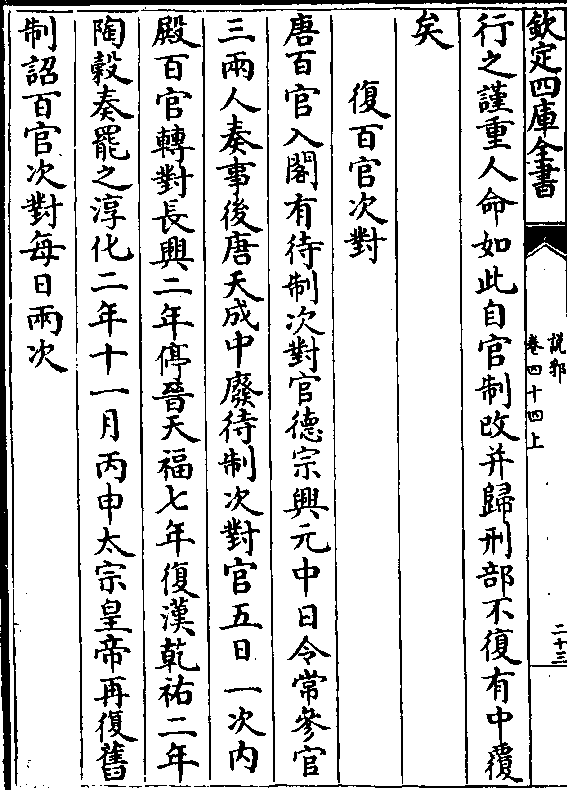 欽定四庫全書
說郛
卷四十四上
二十三
行之謹重人命如此自官制改并歸刑部不復有中覆
矣
復百官次對
唐百官入閣有待制次對官德宗興元中日令常參官
三兩人奏事後唐天成中廢待制次對官五日一次內
殿百官轉對長興二年停晉天福七年復漢乾祐二年
陶穀奏罷之淳化二年十一月丙申太宗皇帝再復舊
制詔百官次對每日兩次